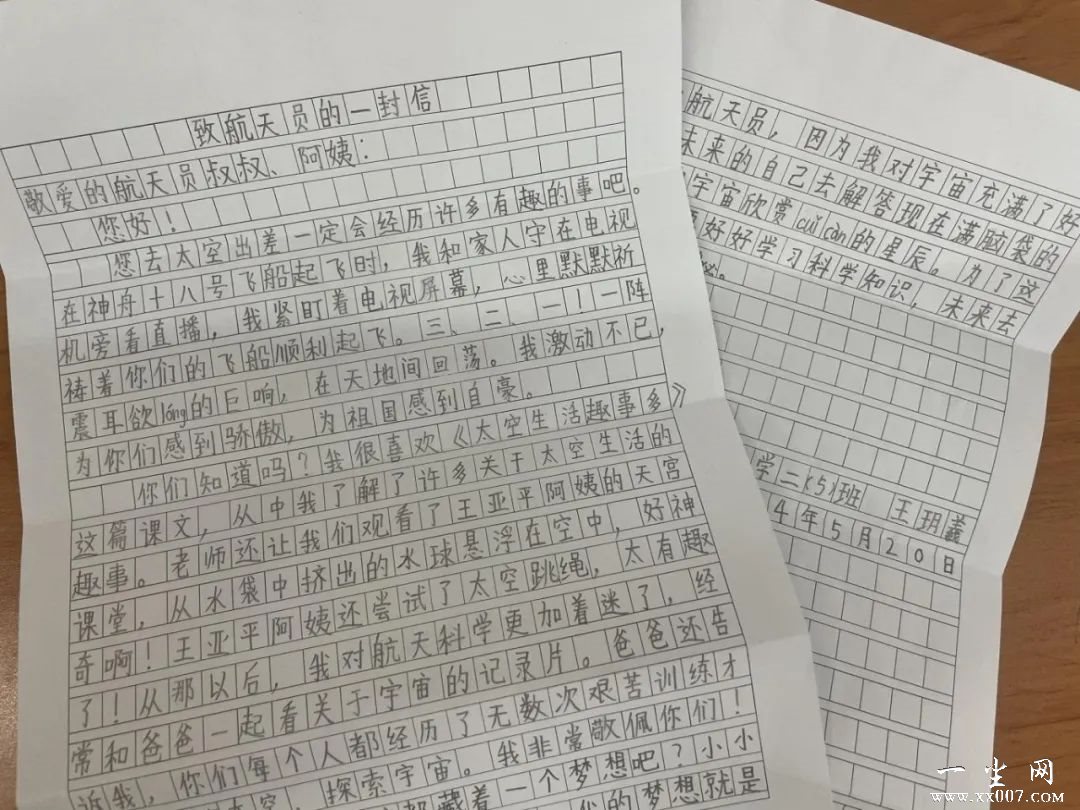 致航天员的一封信
敬爱的航天员叔叔、阿姨：
您好！
您去太空出差一定会经历许多有趣的事吧。
在神舟十八号飞船起飞时，我和家人守在电视
机旁看直播，我紧盯着电视屏幕，心里默默祈
祷着你们的飞船顺利起飞。三、二、一！一阵
震耳欲lóng的巨响，在天地间回荡。我激动不已，
为你们感到骄傲，为祖国感到自豪。
你们知道吗？我很喜欢《太空生活趣事多》
这篇课文，从中我了解了许多关于太空生活的
趣事。老师还让我们观看了王亚平阿姨的天宫
课堂，从水袋中挤出的水球悬浮在空中，好神
奇啊！王亚平阿姨还尝试了太空跳绳，太有趣
了！从那以后，我对航天科学更加着迷了，经
常和爸爸一起看关于宇宙的记录片。爸爸还告
诉我，你们每个人都经历了无数次艰苦训练才
探索宇宙。我非常敬佩你们！
都藏着一个梦想吧？小小
的梦想就是
航天员，因为我对宇宙充满了好
未来的自己去解答现在满脑袋的
宇宙欣赏cuǐ càn的星辰。为了这
要好好学习科学知识，未来去
学二(5)班 王玥
4年5月20日
一生网
www.xx007.com